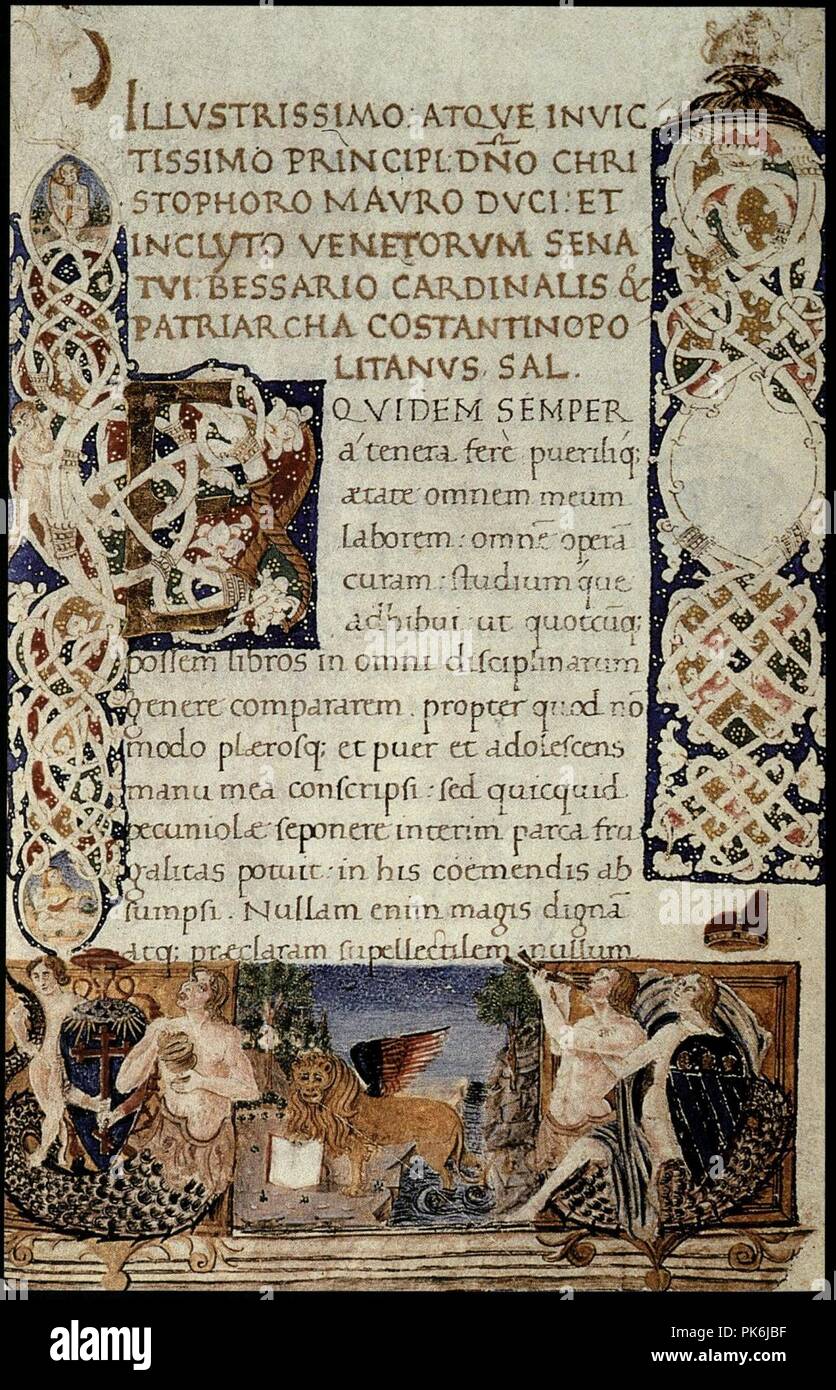 ILLVSTRISSIMO: ATQVE INVIC
TISSIMO PRINCIPI: DÑO CHRI
STOPHORO MAVRO DVCI: ET
INCLYTO VENETORVM SENA
TVI: BESSARIO CARDINALIS &
PATRIARCHA COSTANTINOPO
LITANVS. SAL.
EQVIDEM SEMPER
á tenera ferè pueriliq;
ætate omnem meum
laborem: omnē operā
curam: studiumq́ue
adhibui ut quotcūq;
possem libros in omni disciplinarum
genere compararem. propter quod nō
modo plærosq; et puer et adolescens
manu mea conscripsi: sed quicquid
pecuniolæ seponere interim parca fru
galitas potuit: in his coemendis ab
sumpsi. Nullam enim magis dignā
atq; præclaram supellectilem: nullum
alamy
Image ID: PK6JBF
www.alamy.com